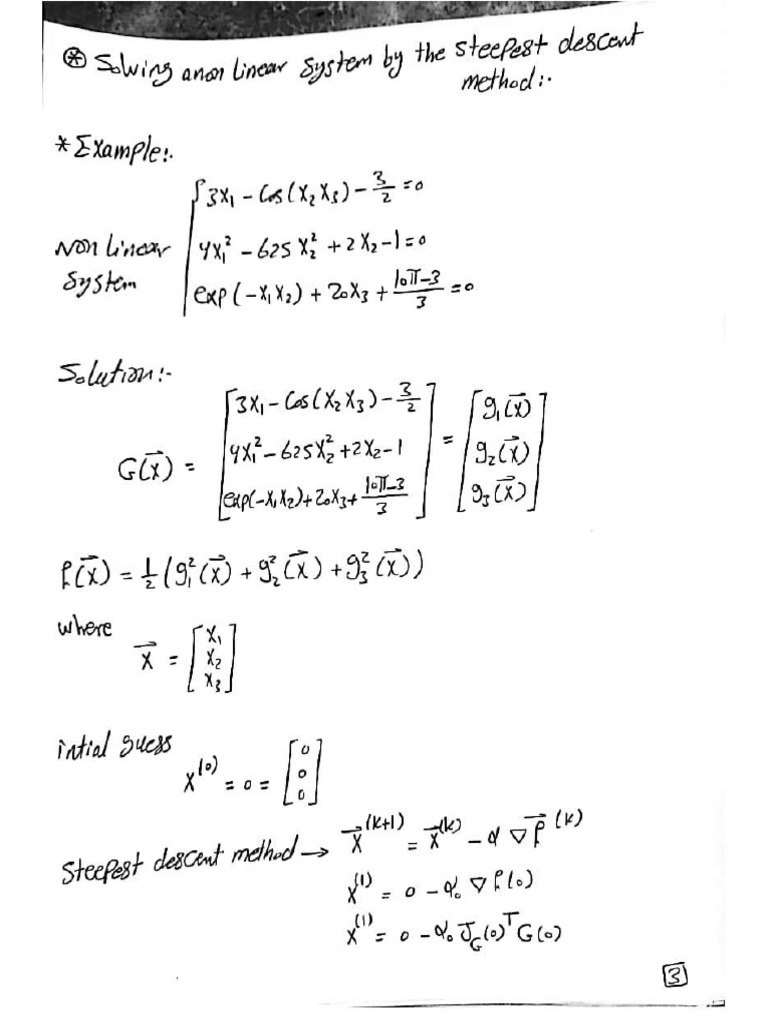 ⊛ Solving anon linear system by the steepest descent
method:-
* Example:-
3x₁ - Cos(x₂x₃) - 3/2 = 0
Non linear system
4x₁² - 625x₂² + 2x₂ - 1 = 0
exp(-x₁x₂) + 20x₃ + (10π-3)/3 = 0
Solution:-
G(x⃗) = [3x₁ - Cos(x₂x₃) - 3/2; 4x₁² - 625x₂² + 2x₂ - 1; exp(-x₁x₂) + 20x₃ + (10π-3)/3] = [g₁(x⃗); g₂(x⃗); g₃(x⃗)]
f(x⃗) = 1/2 (g₁²(x⃗) + g₂²(x⃗) + g₃²(x⃗))
where
x⃗ = [x₁; x₂; x₃]
intial guess
x⁽⁰⁾ = 0 = [0; 0; 0]
Steepest descent method → x⃗⁽ᵏ⁺¹⁾ = x⃗⁽ᵏ⁾ - α ∇f⃗⁽ᵏ⁾
x⁽¹⁾ = 0 - α₀ ∇f(0)
x⁽¹⁾ = 0 - α₀ J_G(0)ᵀ G(0)
3